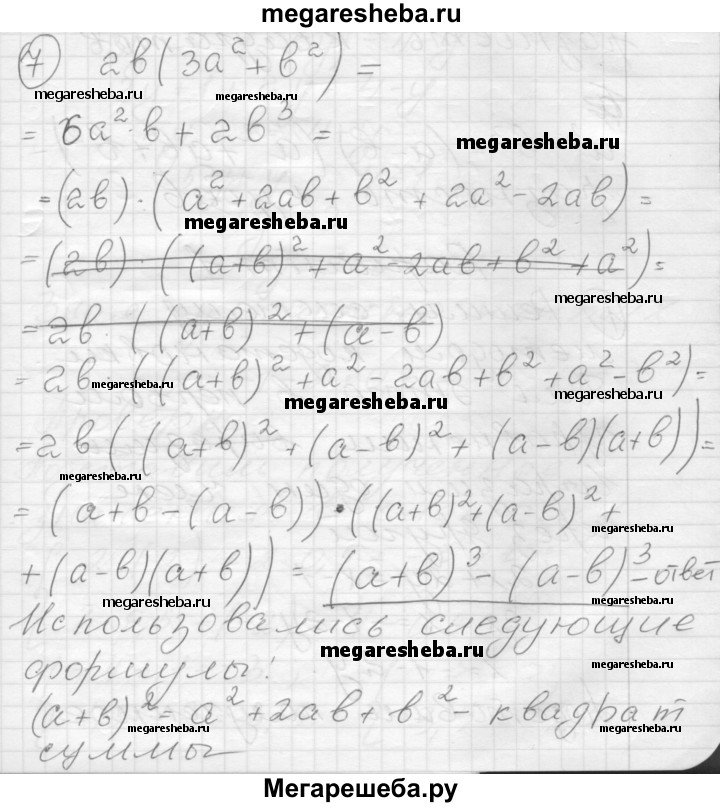 megaresheba.ru
7 2b(3a² + b²) =
megaresheba.ru megaresheba.ru
= 6a²·b + 2b³ =
megaresheba.ru
= (2b)·(a² + 2ab + b² + 2a² - 2ab) =
megaresheba.ru
= (2b)·((a+b)² + a² - 2ab + b² + a²) =
megaresheba.ru
= 2b·((a+b)² + (a-b)
= 2b·((a+b)² + a² - 2ab + b² + a² - b²) =
megaresheba.ru megaresheba.ru
megaresheba.ru
= 2b((a+b)² + (a-b)² + (a-b)(a+b)) =
megaresheba.ru megaresheba.ru
= (a+b-(a-b))·((a+b)² + (a-b)² +
megaresheba.ru
+ (a-b)(a+b)) = (a+b)³ - (a-b)³ - ответ
megaresheba.ru megaresheba.ru
Использовались следующие
megaresheba.ru
формулы:
megaresheba.ru
(a+b)² = a² + 2ab + b² - квадрат
megaresheba.ru megaresheba.ru
суммы
Мегарешеба.ру